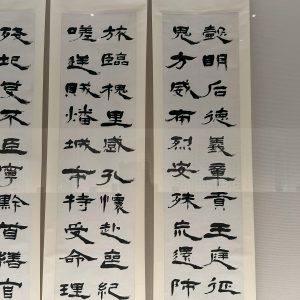 懿明后德義章貢王庭征
鬼方威布烈安殊荒還師
旅臨槐里感孔懷赴喪紀
嗟逆賊燔城市特受命理
殘圮芟不臣寧黔首繕官